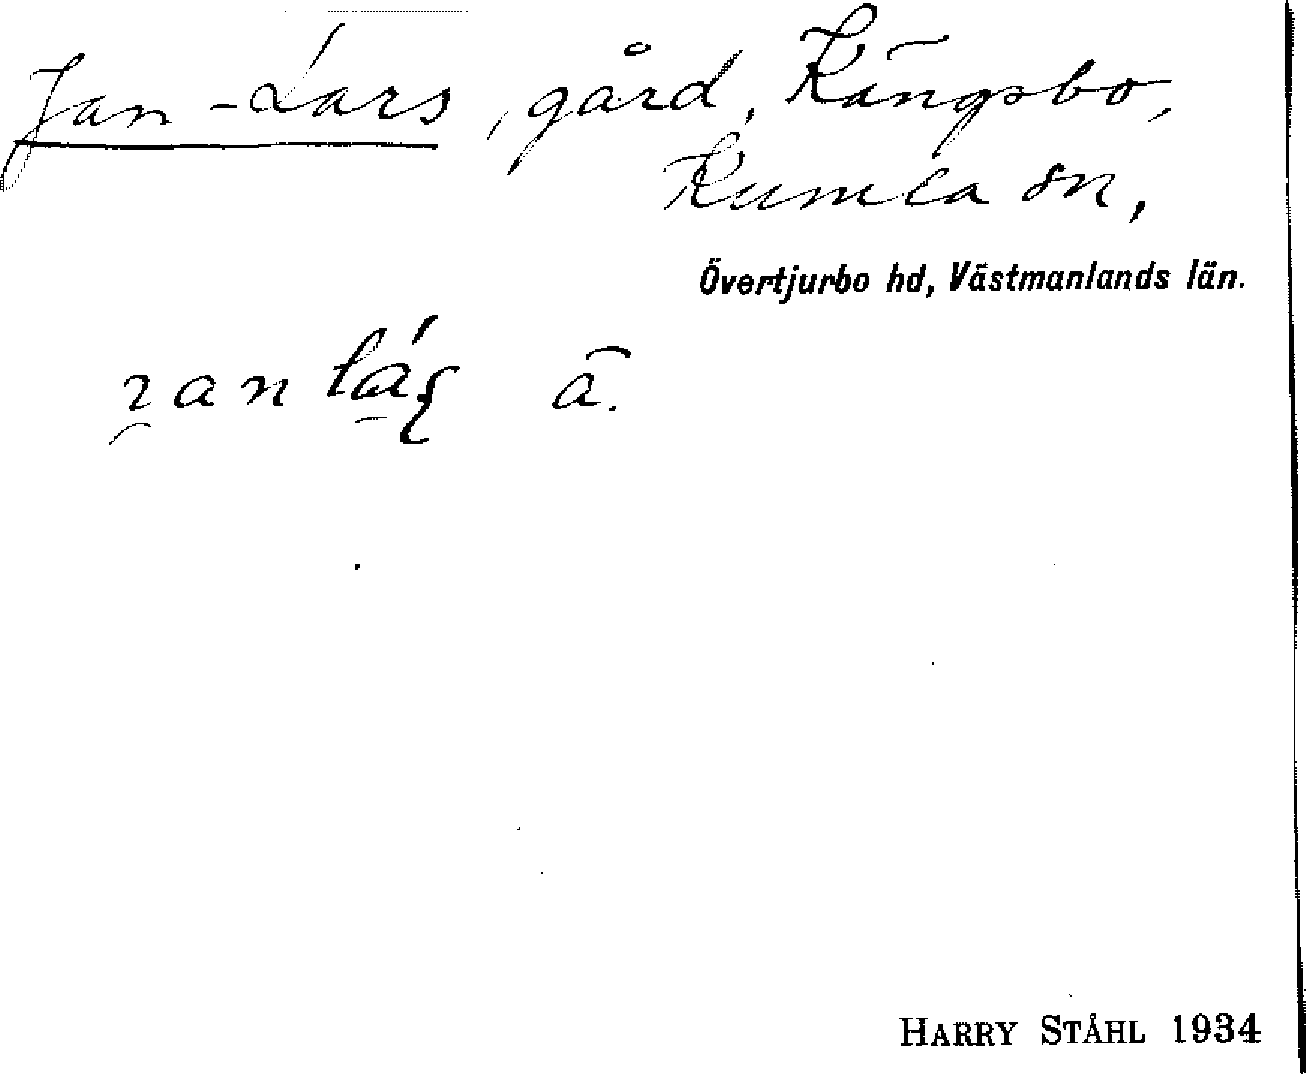 Jan-Lars, gård, Kängsbo,
Kumla sn,
Övertjurbo hd, Västmanlands län.
ā.
HARRY STÅHL 1934